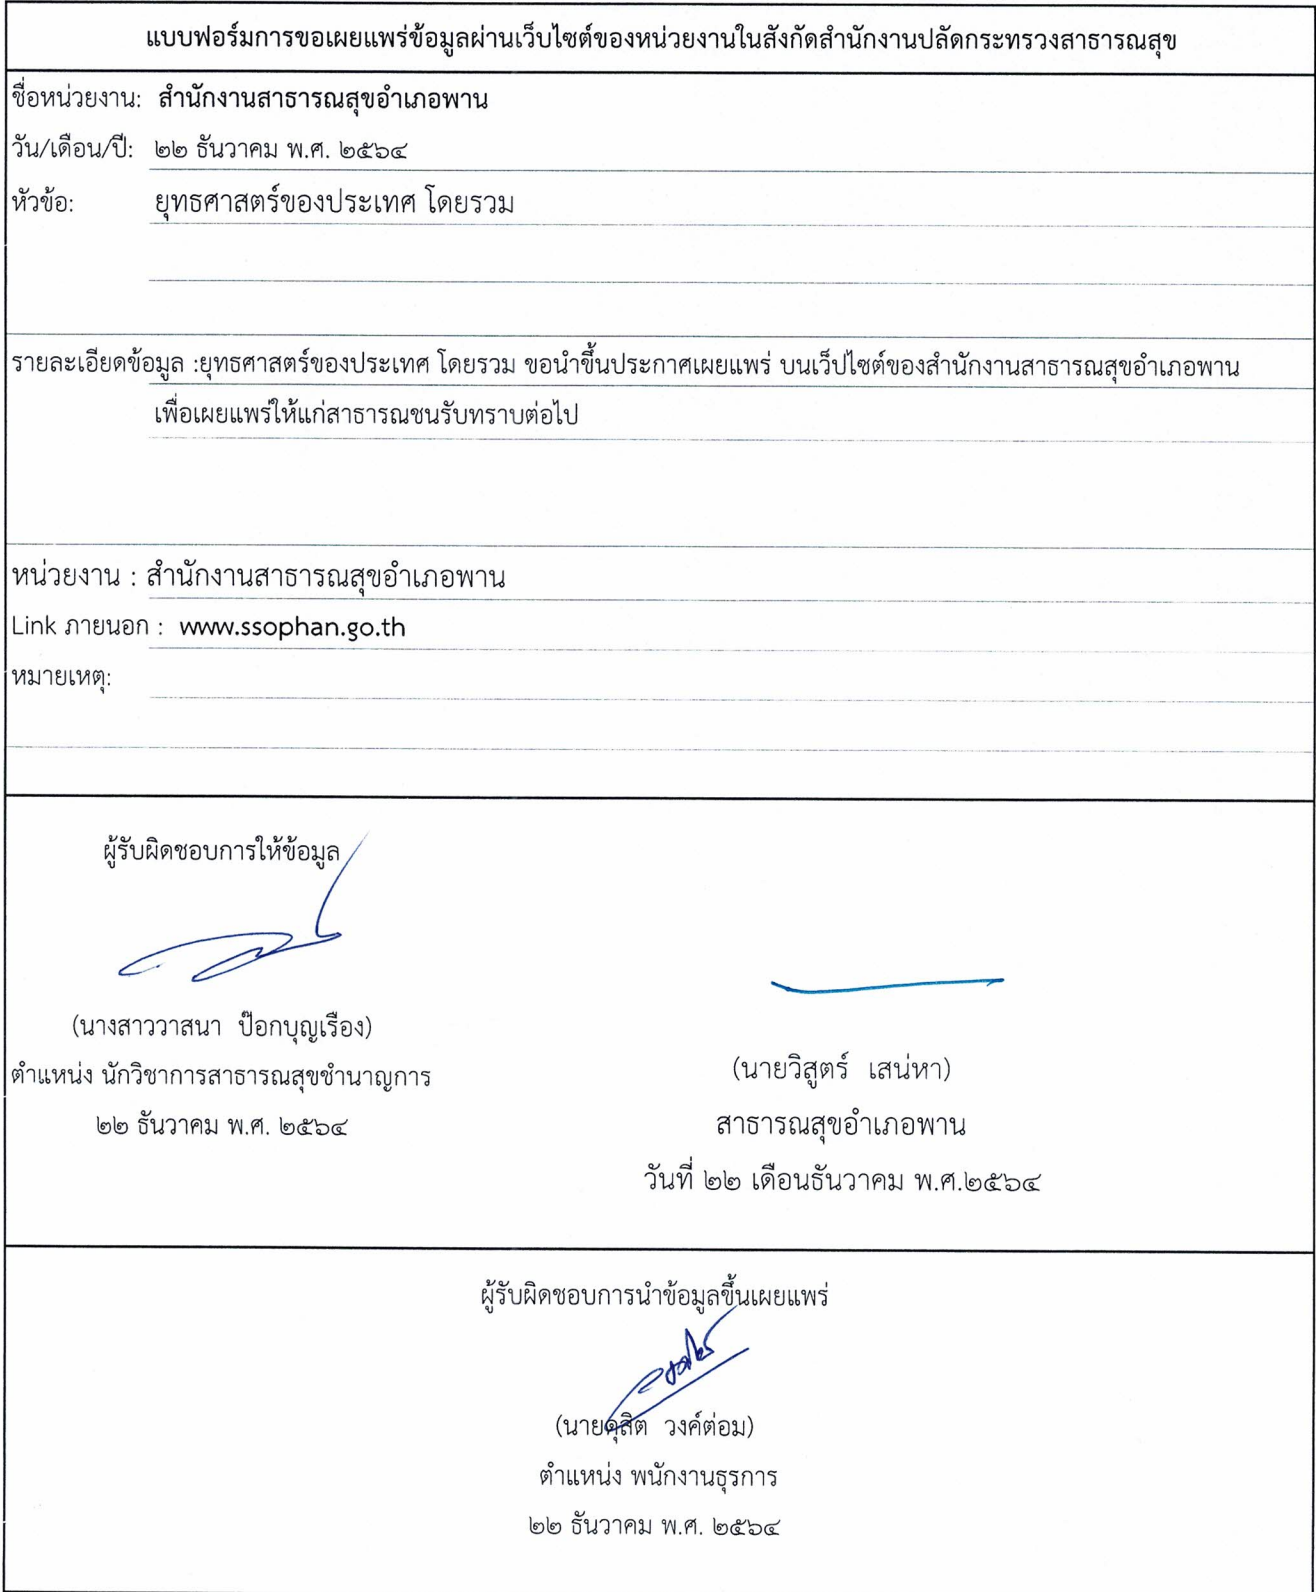 แบบฟอร์มการขอเผยแพร่ข้อมูลผ่านเว็บไซต์ของหน่วยงานในสังกัดสำนักงานปลัดกระทรวงสาธารณสุข
ชื่อหน่วยงาน: สำนักงานสาธารณสุขอำเภอพาน
วัน/เดือน/ปี: ๒๒ ธันวาคม พ.ศ. ๒๕๖๔
หัวข้อ: ยุทธศาสตร์ของประเทศ โดยรวม
รายละเอียดข้อมูล :ยุทธศาสตร์ของประเทศ โดยรวม ขอนำขึ้นประกาศเผยแพร่ บนเว็ปไซต์ของสำนักงานสาธารณสุขอำเภอพาน
เพื่อเผยแพร่ให้แก่สาธารณชนรับทราบต่อไป
หน่วยงาน : สำนักงานสาธารณสุขอำเภอพาน
Link ภายนอก : www.ssophan.go.th
หมายเหตุ:
ผู้รับผิดชอบการให้ข้อมูล
(นางสาววาสนา ป๊อกบุญเรือง)
ตำแหน่ง นักวิชาการสาธารณสุขชำนาญการ
๒๒ ธันวาคม พ.ศ. ๒๕๖๔
(นายวิสูตร์ เสน่หา)
สาธารณสุขอำเภอพาน
วันที่ ๒๒ เดือนธันวาคม พ.ศ.๒๕๖๔
ผู้รับผิดชอบการนำข้อมูลขึ้นเผยแพร่
(นายดุสิต วงค์ต่อม)
ตำแหน่ง พนักงานธุรการ
๒๒ ธันวาคม พ.ศ. ๒๕๖๔